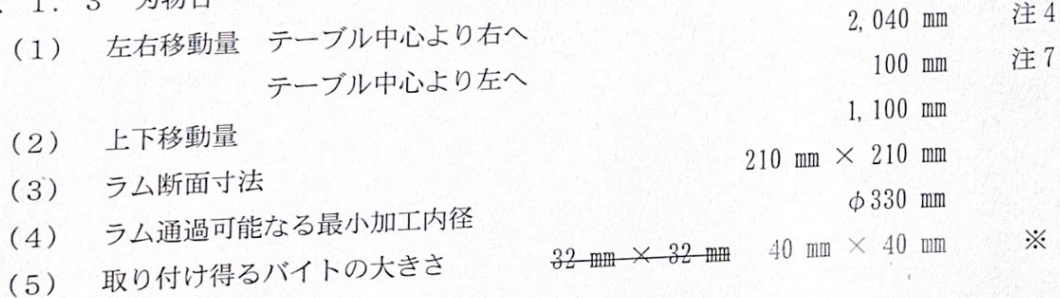 1. 3 刃物台
(1) 左右移動量 テーブル中心より右へ 2,040 mm 注4
テーブル中心より左へ 100 mm 注7
(2) 上下移動量 1,100 mm
(3) ラム断面寸法 210 mm × 210 mm
(4) ラム通過可能なる最小加工内径 φ330 mm
(5) 取り付け得るバイトの大きさ 32 mm × 32 mm 40 mm × 40 mm ※